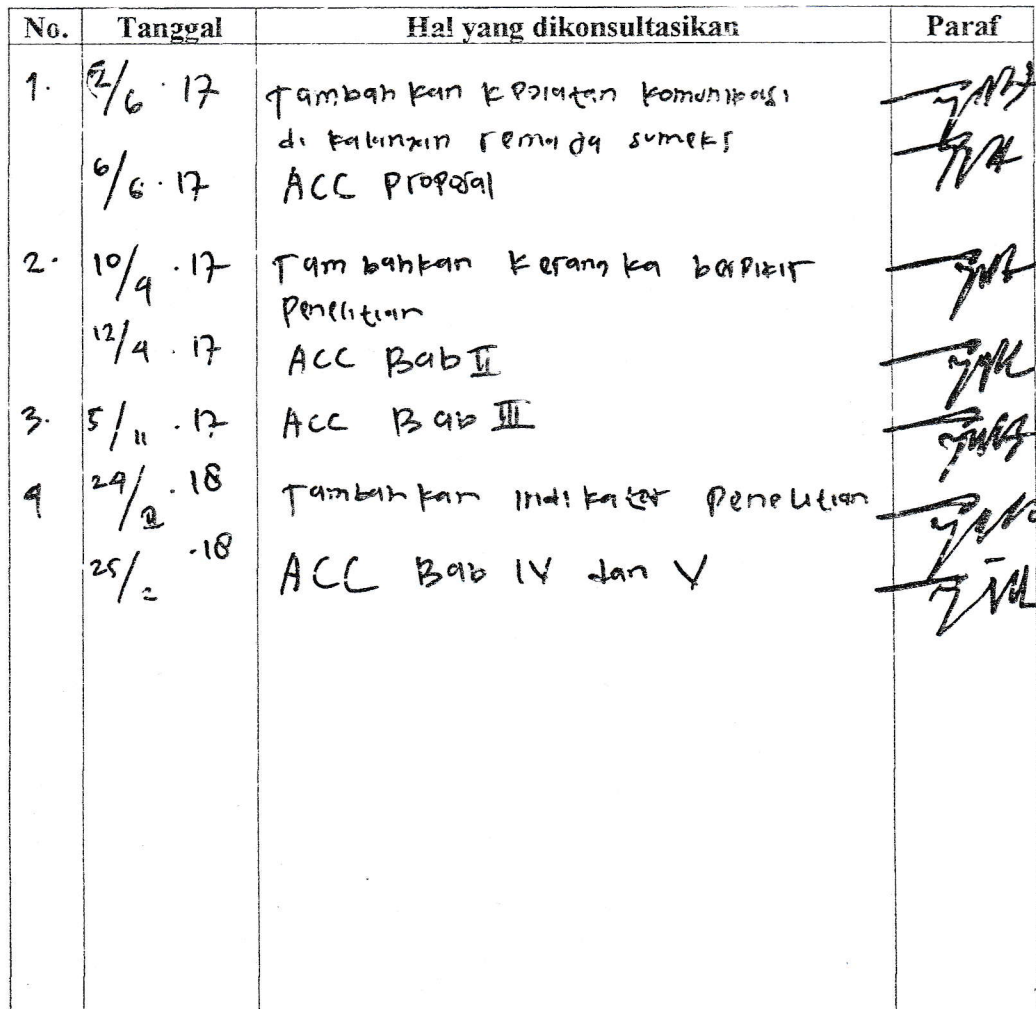 No. Tanggal Hal yang dikonsultasikan Paraf
1. 2/6 . 17 Tambahkan kegiatan komunikasi
di kalangan remaja sumeks
6/6 . 17 ACC Proposal
2. 10/9 . 17 Tambahkan Kerangka berpikir
Penelitian
12/9 . 17 ACC Bab II
3. 5/11 . 17 ACC Bab III
4 24/II . 18 Tambahkan Indikator Penelitian
25/= .18 ACC Bab IV dan V